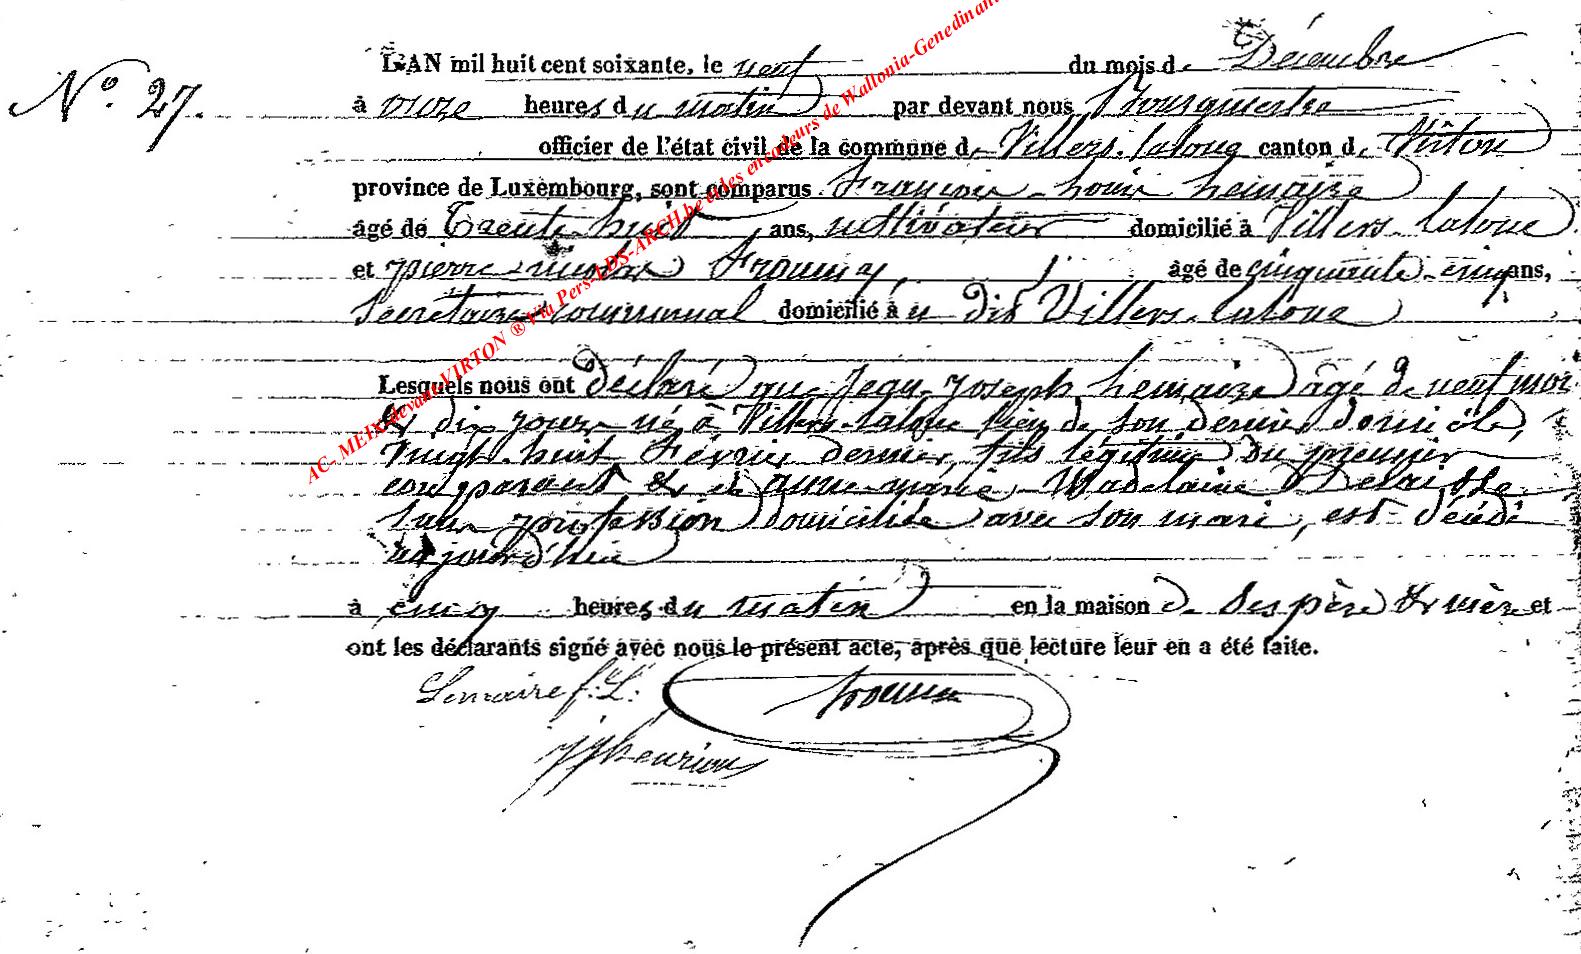 N° 27.
L'AN mil huit cent soixante, le neuf du mois de Décembre
à onze heures du matin par devant nous
officier de l'état civil de la commune de Villers-laloue canton de Virton
province de Luxembourg, sont comparus François Louis Lemaire
âgé de Trente-huit ans, cultivateur domicilié à Villers-laloue
et pierre nicolas âgé de cinquante-cinq ans,
Secrétaire communal domicilié à u dit Villers-laloue
Lesquels nous ont déclaré que Jean-Joseph Lemaire âgé de neuf mois
& dix jours né à Villers-laloue lieu de son dernier domicile,
vingt-huit Février dernier, fils légitime du premier
comparant & de anne-marie-Madelaine
sans profession domiciliée avec son mari, est décédé
aujourd'hui
à cinq heures du matin en la maison de Ses père & mère et
ont les déclarants signé avec nous le présent acte, après que lecture leur en a été faite.
Lemaire f: L:
AC- MEIX-devant-VIRTON ® Via Pers-LDS-ARCH.be et les encodeurs de Wallonia-Genedinant